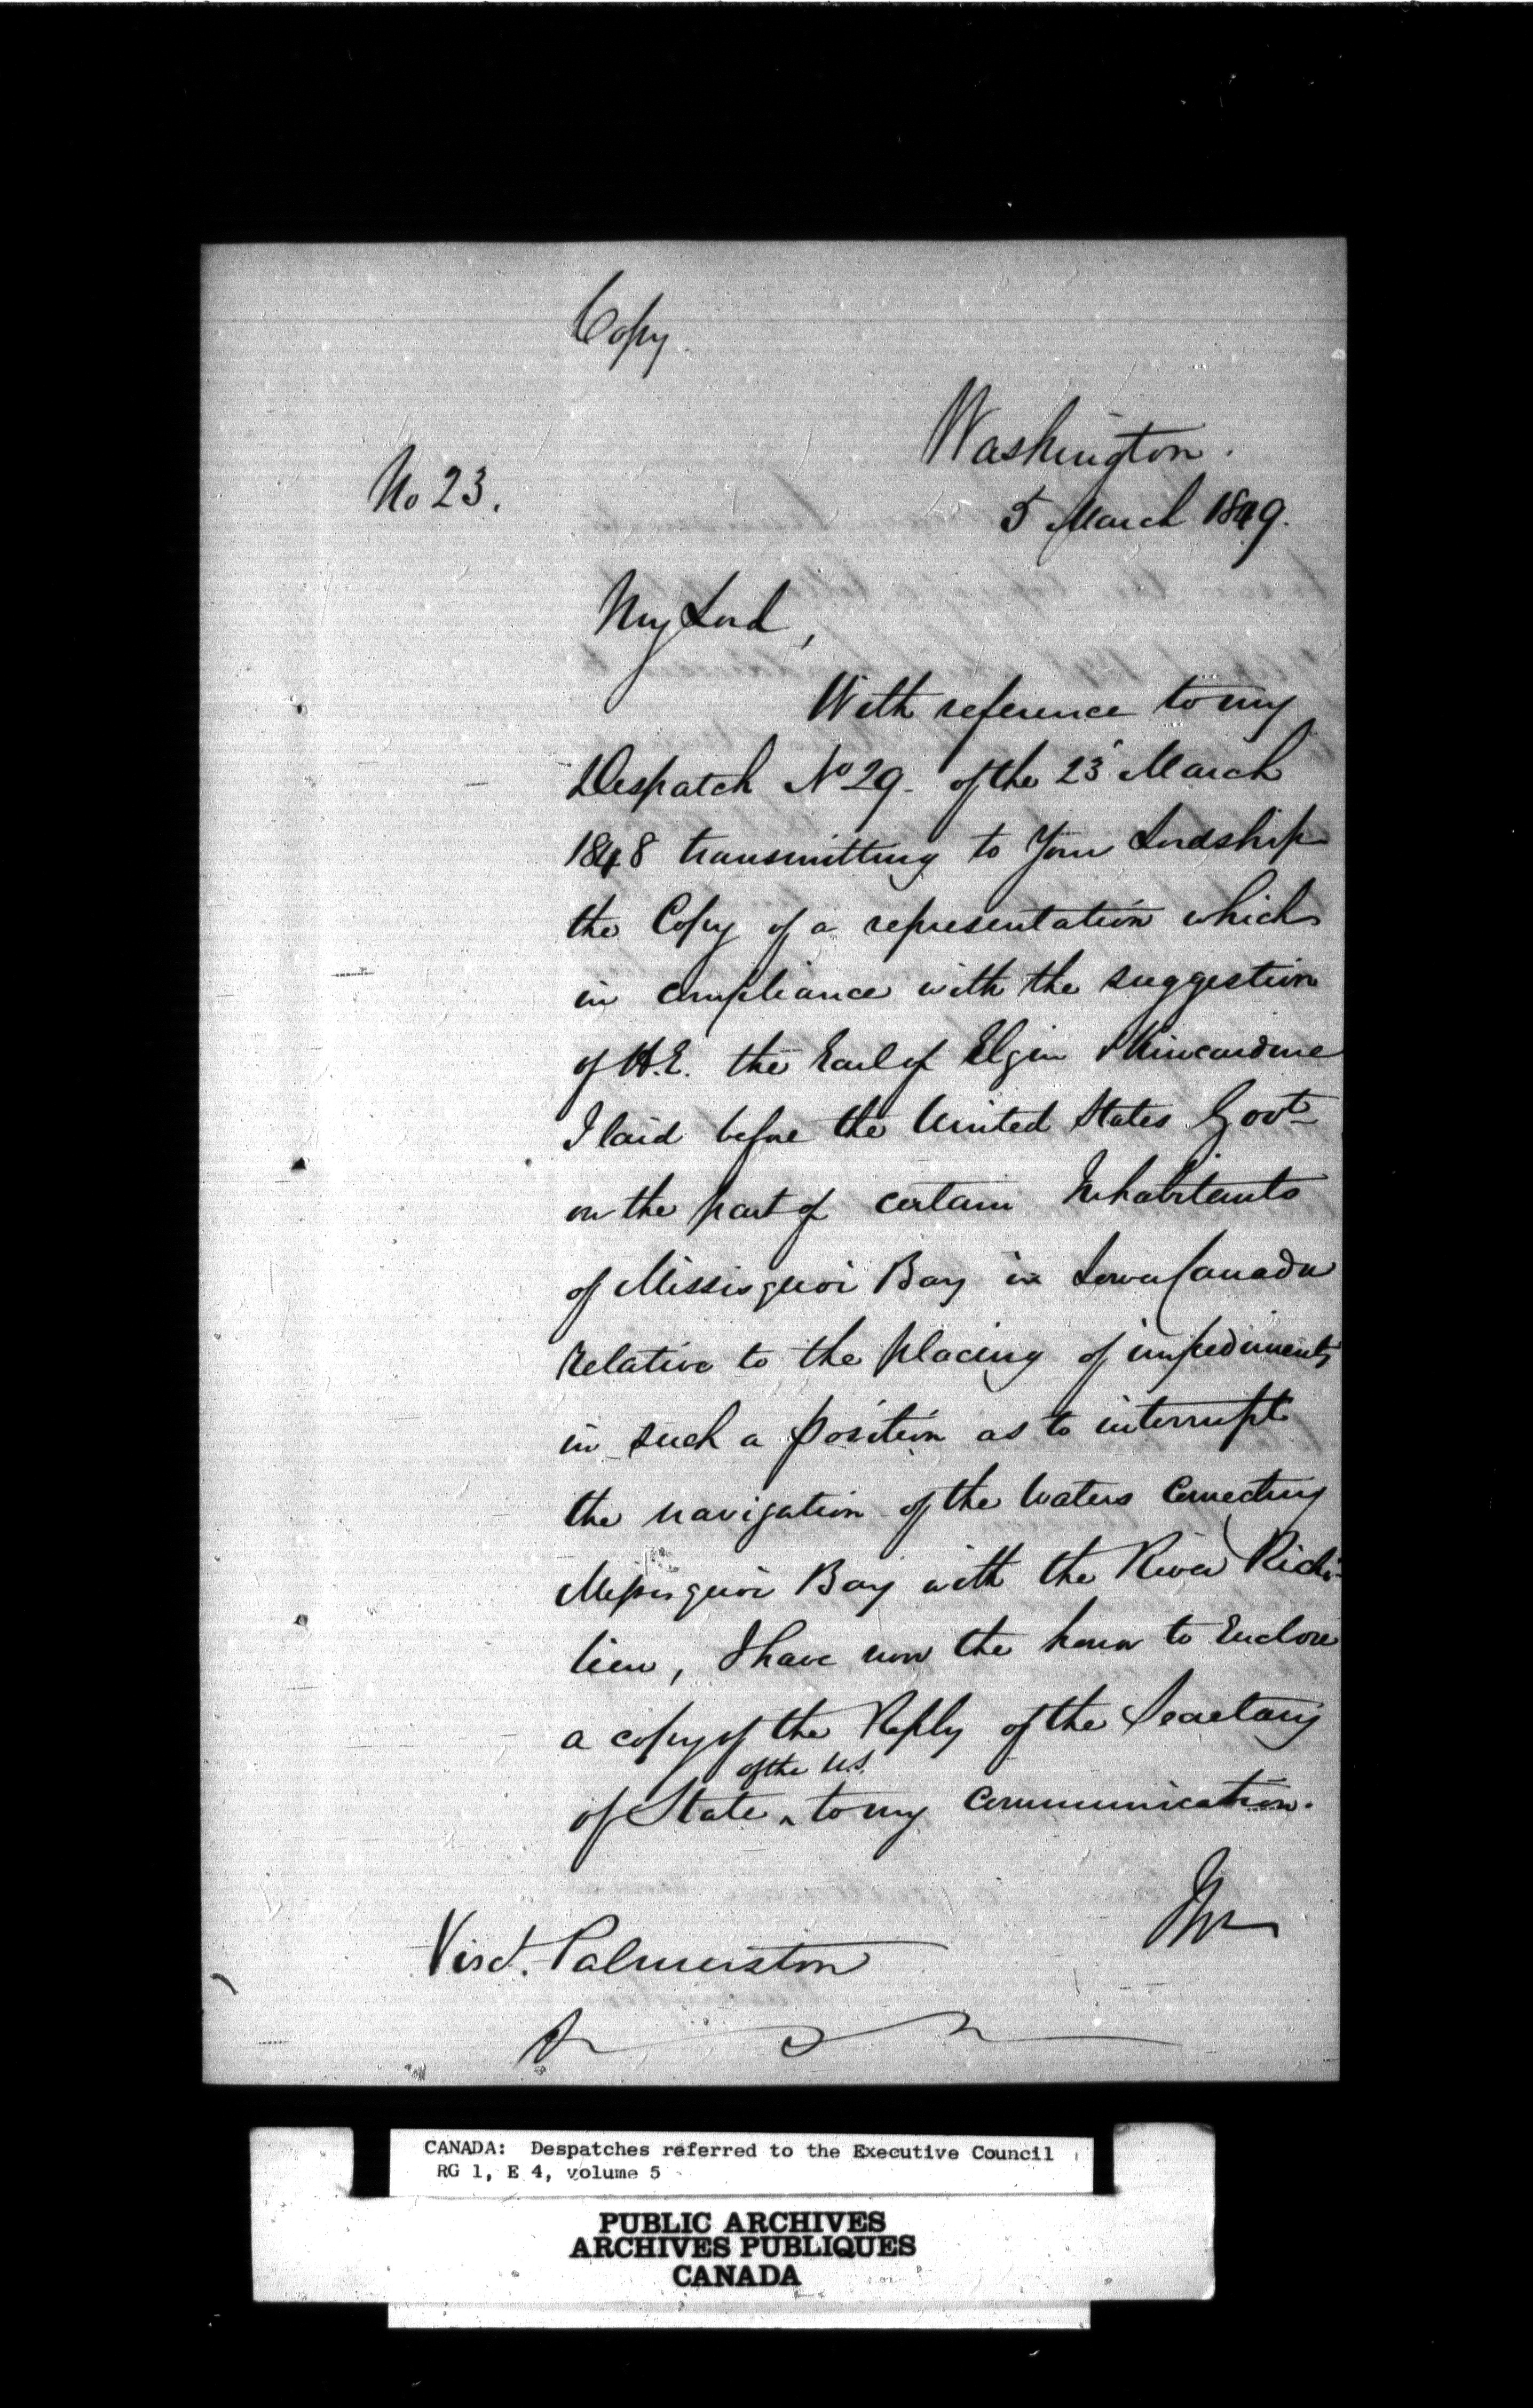 Copy.
Washington.
No 23.
5 March 1849.
My Lord,
With reference to my
Despatch No 29. of the 23 March
1848 transmitting to Your Lordship
the Copy of a representation which
in compliance with the suggestion
of H.E. the Earl of Elgin & Kincardine
I laid before the United States Govt
on the part of certain Inhabitants
of Missisquoi Bay in Lower Canada
relative to the placing of impediments
in such a position as to interrupt
the navigation of the Waters Connecting
Missisquoi Bay with the River Riche-
lieu, I have now the honor to Enclose
a copy of the Reply of the Secretary
of the U.S.
of State ^ to my Communication.
Visct. Palmerston
CANADA: Despatches referred to the Executive Council
RG 1, E 4, volume 5
PUBLIC ARCHIVES
ARCHIVES PUBLIQUES
CANADA